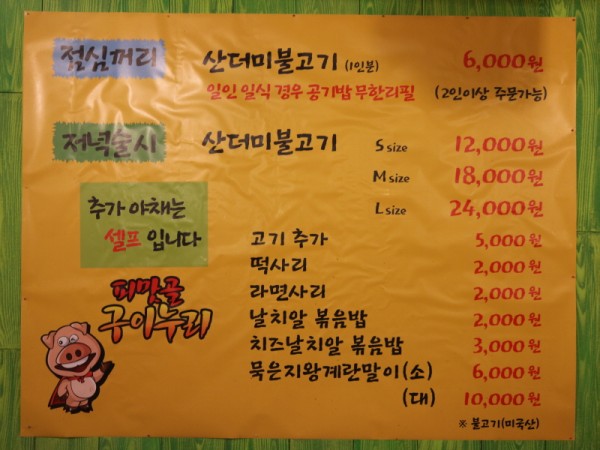 점심꺼리 산더미불고기 (1인분) 6,000원
일인 일식 경우 공기밥 무한리필 (2인이상 주문가능)
저녁술시 산더미불고기 S size 12,000원
M size 18,000원
L size 24,000원
추가 야채는
셀프 입니다
고기 추가 5,000원
떡사리 2,000원
라면사리 2,000원
날치알 볶음밥 2,000원
치즈날치알 볶음밥 3,000원
묵은지왕계란말이(소) 6,000원
(대) 10,000원
피맛골
구이누리
※ 불고기(미국산)